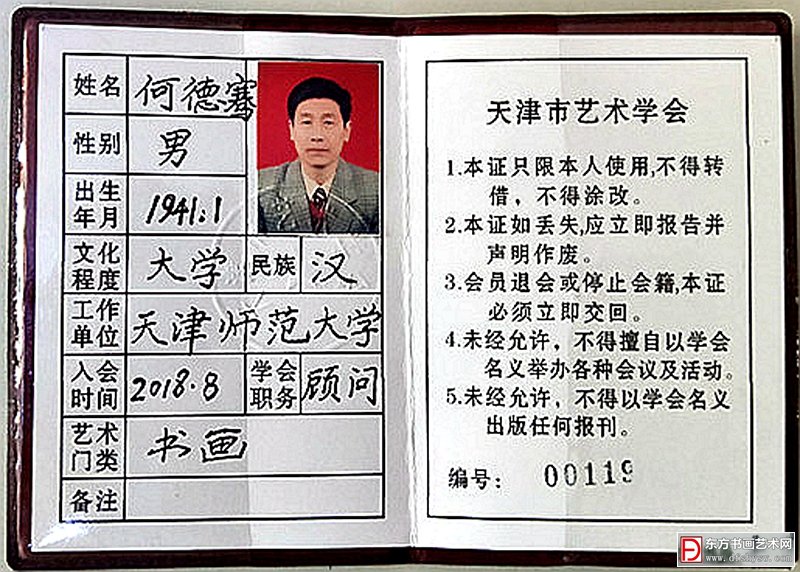 姓名 何德骞
性别 男
出生年月 1941.1
文化程度 大学 民族 汉
工作单位 天津师范大学
入会时间 2018.8 学会职务 顾问
艺术门类 书画
备注
天津市艺术学会
1.本证只限本人使用,不得转
借，不得涂改。
2.本证如丢失,应立即报告并
声明作废。
3.会员退会或停止会籍,本证
必须立即交回。
4.未经允许，不得擅自以学会
名义举办各种会议及活动。
5.未经允许，不得以学会名义
出版任何报刊。
编号：00119
东方书画艺术网